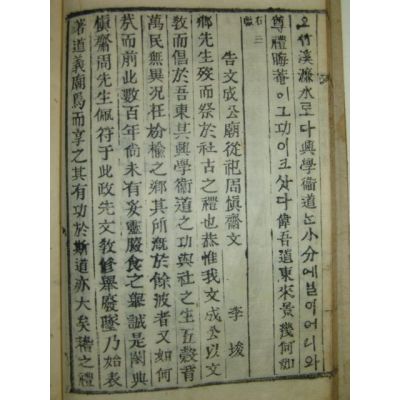 오竹溪濂水로다興學衛道는小分네일이어니와
尊禮晦菴이그功이크샷다偉吾道東來景幾何如
告文成公廟從祀周愼齋文 李埈
鄕先生歿而祭於社古之禮也恭惟我文成公以文
敎而倡於吾東其興學衛道之功與社之生五穀育
萬民無異況在枌楡之鄕其所漑於餘波者又如何
哉而前此數百年尙未有妥靈腏食之擧誠是闕典
愼齋周先生佩符于此政先文敎修擧廢墜乃始表
著道義廟焉而享之其有功於斯道亦大矣稽之禮